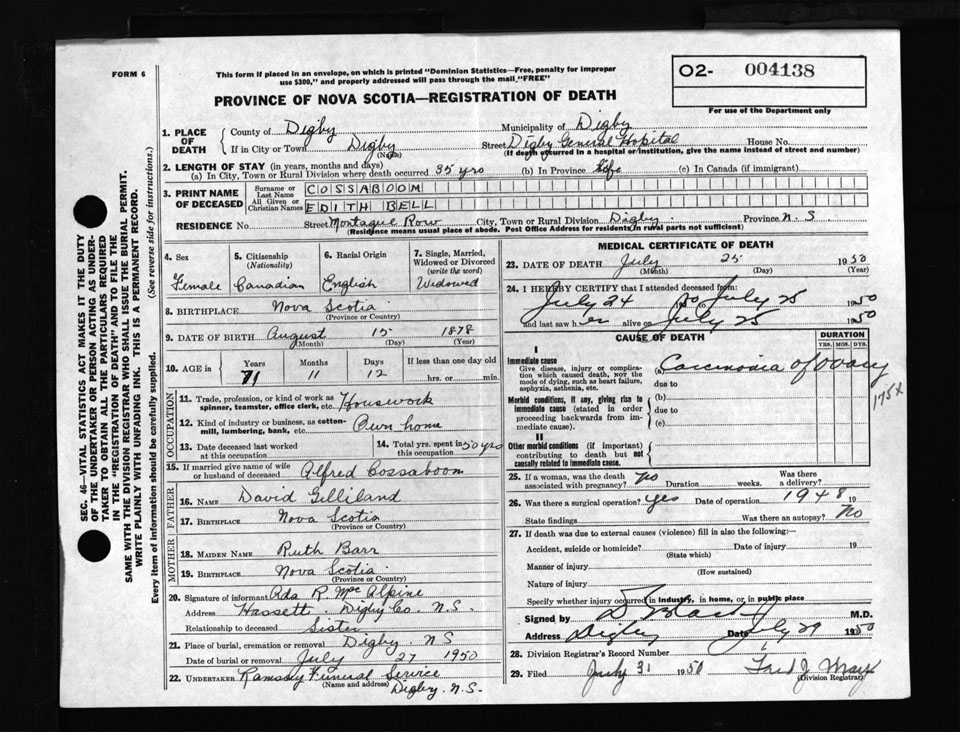 FORM 6
This form if placed in an envelope, on which is printed "Dominion Statistics—Free, penalty for improper
use $300," and properly addressed will pass through the mail "FREE"
O2- 004138
For use of the Department only
PROVINCE OF NOVA SCOTIA—REGISTRATION OF DEATH
1. PLACE OF DEATH
County of Digby Municipality of Digby
If in City or Town Digby (Name) Street Digby General Hospital House No.
(If death occurred in a hospital or institution, give the name instead of street and number)
2. LENGTH OF STAY (in years, months and days)
(a) In City, Town or Rural Division where death occurred 35 yrs (b) In Province Life (c) In Canada (if immigrant)
3. PRINT NAME OF DECEASED
Surname or Last Name COSSABOOM
All Given or Christian Names EDITH BELL
RESIDENCE No. Street Montague Row City, Town or Rural Division Digby Province N.S.
(Residence means usual place of abode. Post Office Address for residents in rural parts not sufficient)
4. Sex
Female
5. Citizenship
(Nationality)
Canadian
6. Racial Origin
English
7. Single, Married,
Widowed or Divorced
(write the word)
Widowed
8. BIRTHPLACE Nova Scotia
(Province or Country)
9. DATE OF BIRTH August 15 1878
(Month) (Day) (Year)
10. AGE in
Years Months Days If less than one day old
71 11 12 hrs. or min.
OCCUPATION
11. Trade, profession, or kind of work as
spinner, teamster, office clerk, etc. Housework
12. Kind of industry or business, as cotton-
mill, lumbering, bank, etc. Own home
13. Date deceased last worked
at this occupation
14. Total yrs. spent in
this occupation 50 yrs
15. If married give name of wife
or husband of deceased Alfred Cossaboom
FATHER
16. NAME David Gilliland
17. BIRTHPLACE Nova Scotia
(Province or Country)
MOTHER
18. MAIDEN NAME Ruth Barr
19. BIRTHPLACE Nova Scotia
(Province or Country)
20. Signature of informant Ada R. McAlpine
Address Hassett. Digby Co. N.S.
Relationship to deceased Sister
21. Place of burial, cremation or removal Digby. NS
Date of burial or removal July 27 1950
22. UNDERTAKER Ramsay Funeral Service
(Name and address) Digby. N.S.
MEDICAL CERTIFICATE OF DEATH
23. DATE OF DEATH July 25 1950
(Month) (Day) (Year)
24. I HEREBY CERTIFY that I attended deceased from:
July 24 1950 to July 25 1950
and last saw her alive on July 25 1950
CAUSE OF DEATH
DURATION
YRS. MOS. DYS.
I
Immediate cause
Give disease, injury or complica-
tion which caused death, not the
mode of dying, such as heart failure,
asphyxia, asthenia, etc.
(a) Carcinonia of Ovary
due to
175x
Morbid conditions, if any, giving rise to
immediate cause (stated in order
proceeding backwards from im-
mediate cause).
(b)
due to
(c)
II
Other morbid conditions (if important)
contributing to death but not
causally related to immediate cause.
25. If a woman, was the death
associated with pregnancy? No Duration weeks. Was there
a delivery?
26. Was there a surgical operation? Yes Date of operation 1948 19
State findings Was there an autopsy? No
27. If death was due to external causes (violence) fill in also the following:
Accident, suicide or homicide? Date of injury 19
(State which)
Manner of injury
(How sustained)
Nature of injury
Specify whether injury occurred in industry, in home, or in public place
Signed by M.D.
Address Digby Date July 29 1950
28. Division Registrar's Record Number
29. Filed July 31 1950 Fred J. May
(Division Registrar)
SEC. 46—VITAL STATISTICS ACT MAKES IT THE DUTY
OF THE UNDERTAKER OR PERSON ACTING AS UNDER-
TAKER TO OBTAIN ALL THE PARTICULARS REQUIRED
IN THE "REGISTRATION OF DEATH" AND TO FILE THE
SAME WITH THE DIVISION REGISTRAR WHO SHALL ISSUE THE BURIAL PERMIT.
WRITE PLAINLY WITH UNFADING INK. THIS IS A PERMANENT RECORD.
Every item of information should be carefully supplied. (See reverse side for instructions.)